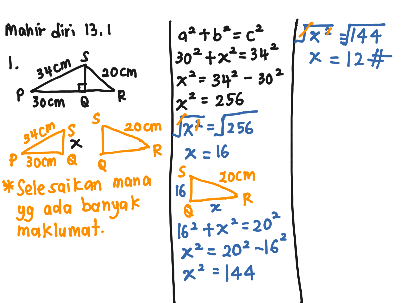 Mahir diri 13.1
1.
S
34cm 20cm
P 30cm Q R
S
34cm
x
P 30cm Q
S
20cm
Q R
*Selesaikan mana
yg ada banyak
maklumat.
a² + b² = c²
30² + x² = 34²
x² = 34² - 30²
x² = 256
√x² = √256
x = 16
S
20cm
16
Q x R
16² + x² = 20²
x² = 20² - 16²
x² = 144
√x² = √144
x = 12 #